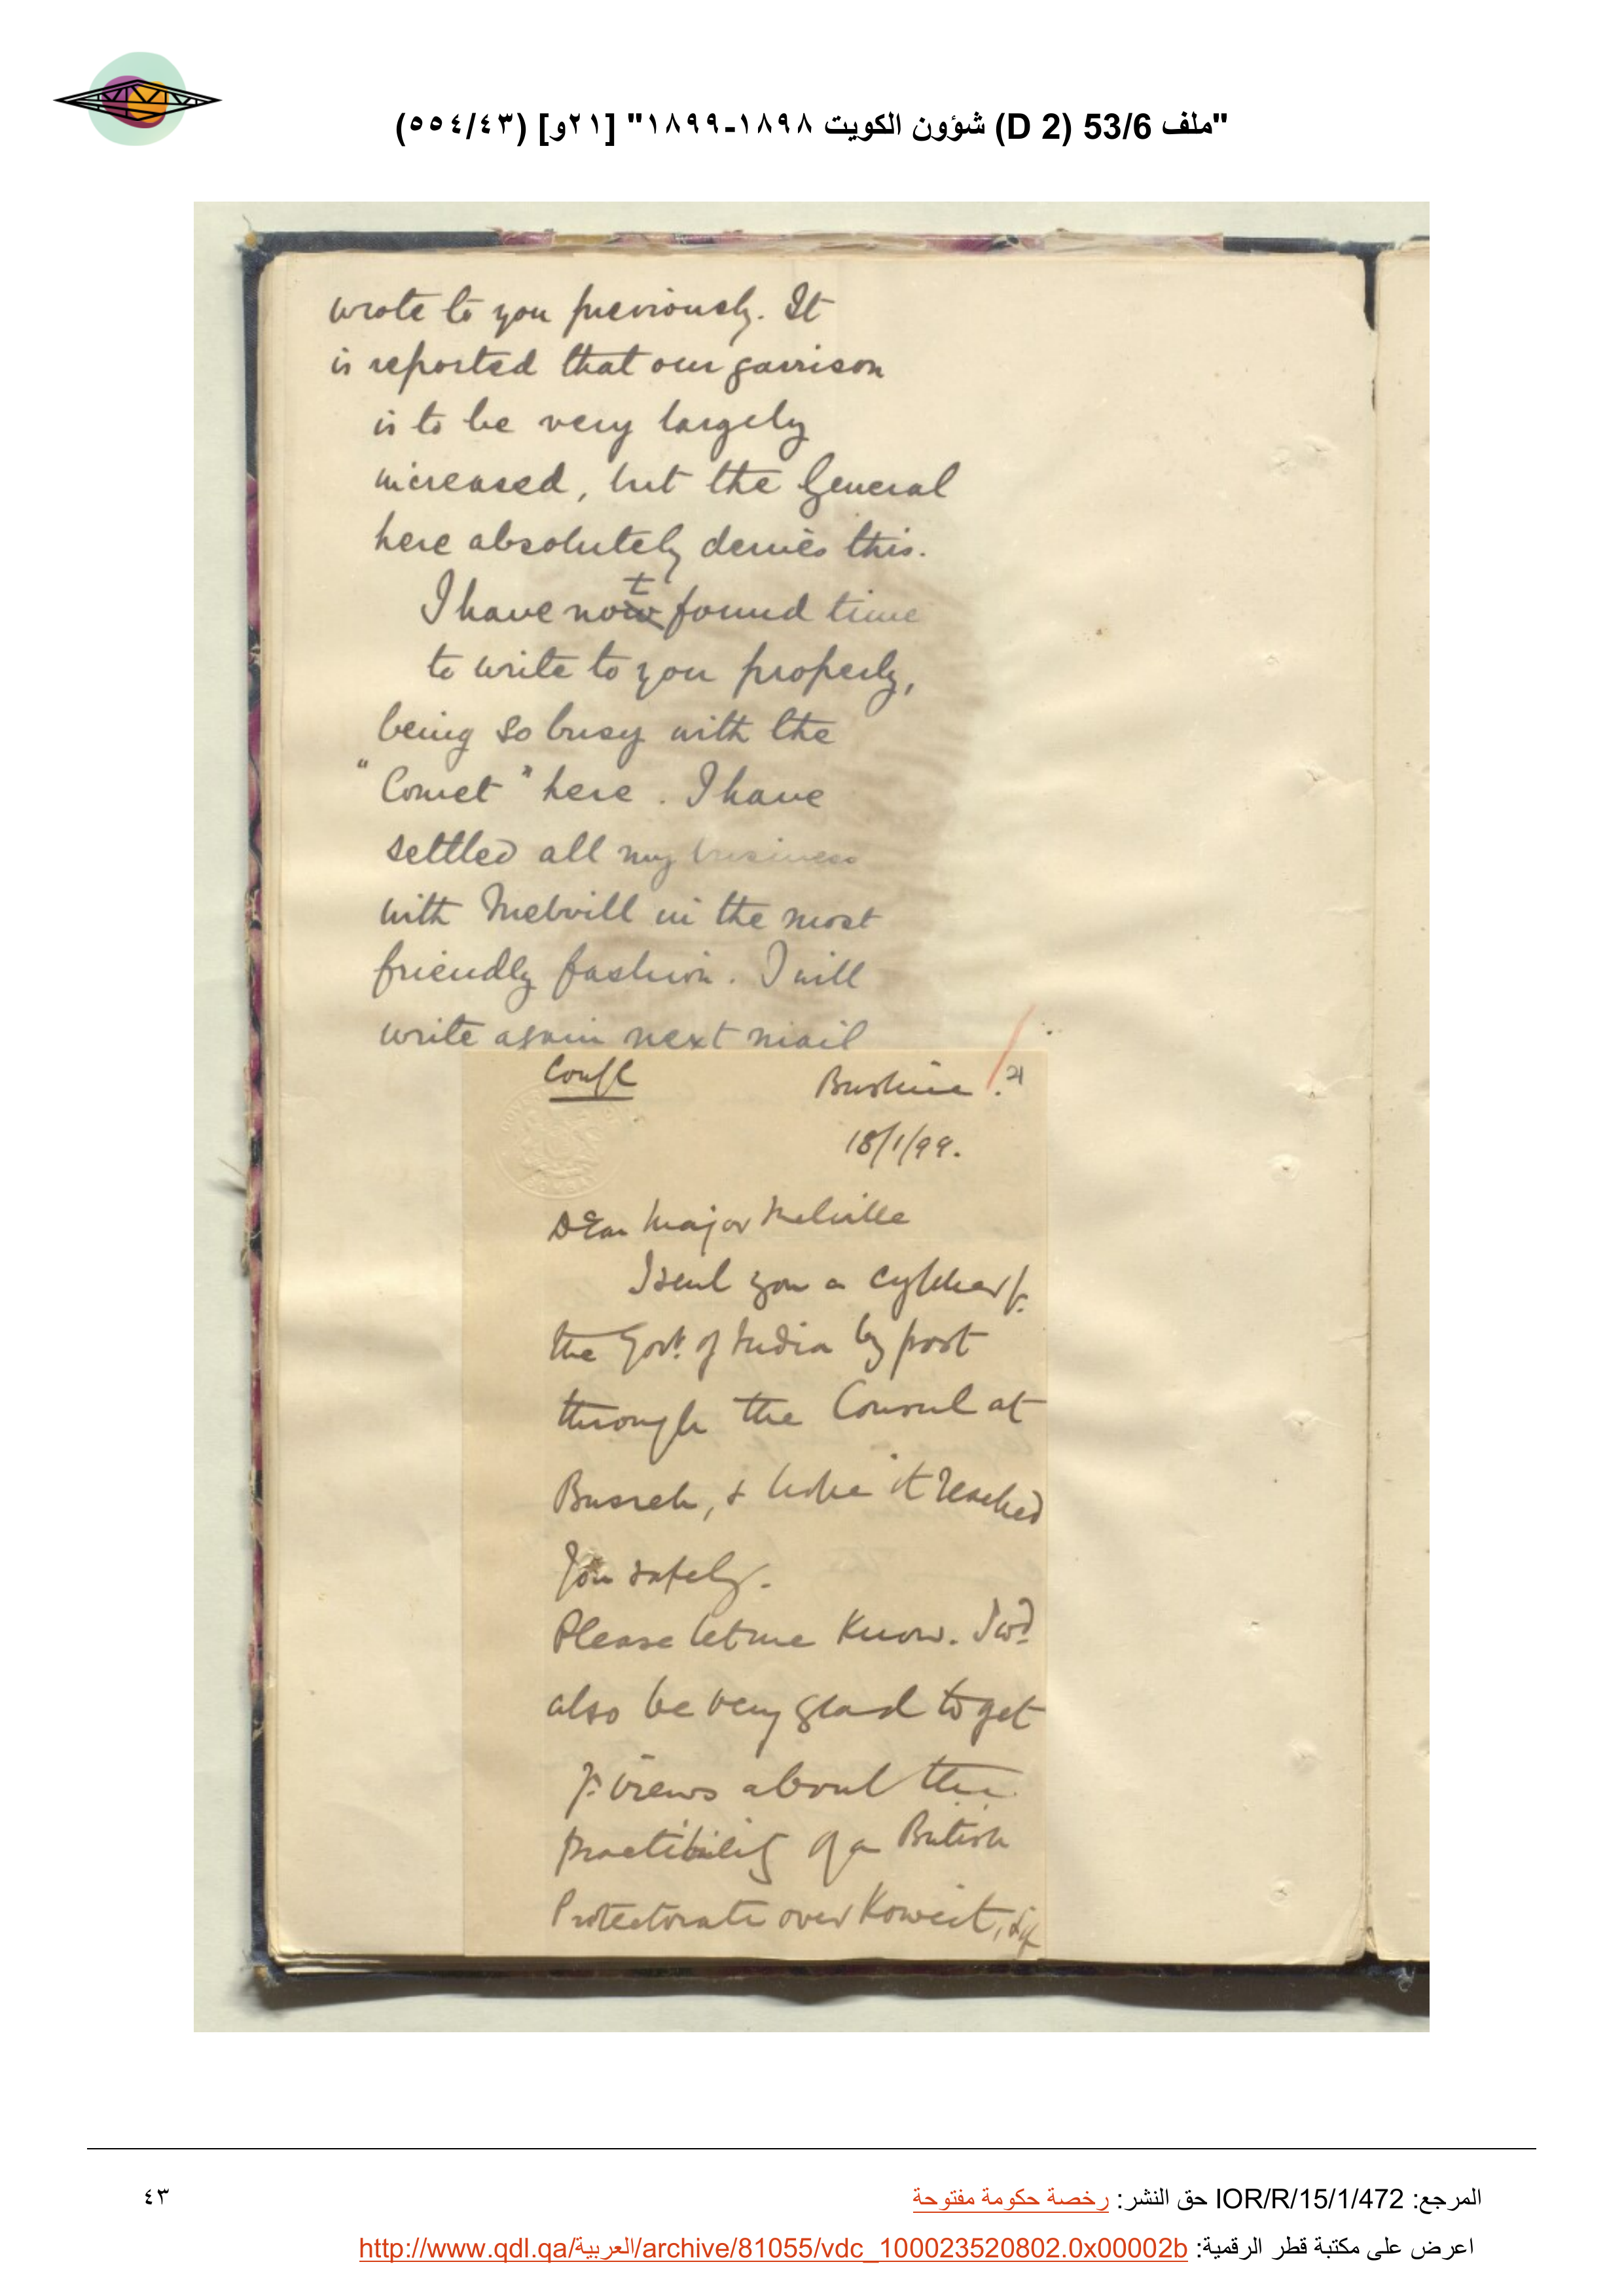 "ملف 53/6 (D 2) شؤون الكويت ١٨٩٨-١٨٩٩" [٢١و] (٥٥٤/٤٣)
wrote to you previously. It
is reported that our garrison
is to be very largely
increased, but the General
here absolutely denies this.
I have not found time
to write to you properly,
being so busy with the
"Comet" here. I have
settled all my business
with Melvill in the most
friendly fashion. I will
write again next mail
Confl Bushire. 21
18/1/99.
Dear Major Melville
I sent you a cypher fr.
the Govt. of India by post
through the Consul at
Busreh, & hope it reached
you safely.
Please let me know. I wd.
also be very glad to get
yr. views about the
practibility of a British
Protectorate over Koweit, & if
المرجع: IOR/R/15/1/472 حق النشر: رخصة حكومة مفتوحة
٤٣
اعرض على مكتبة قطر الرقمية: http://www.qdl.qa/العربية/archive/81055/vdc_100023520802.0x00002b